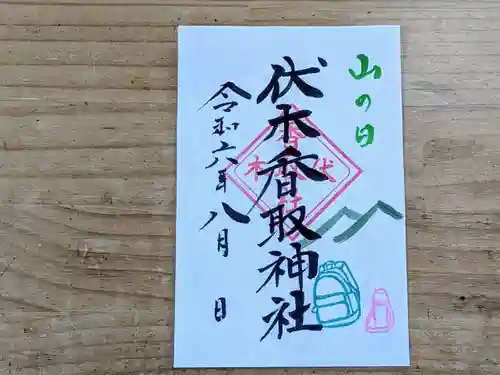 山の日
伏木香取神社
令和六年八月 日